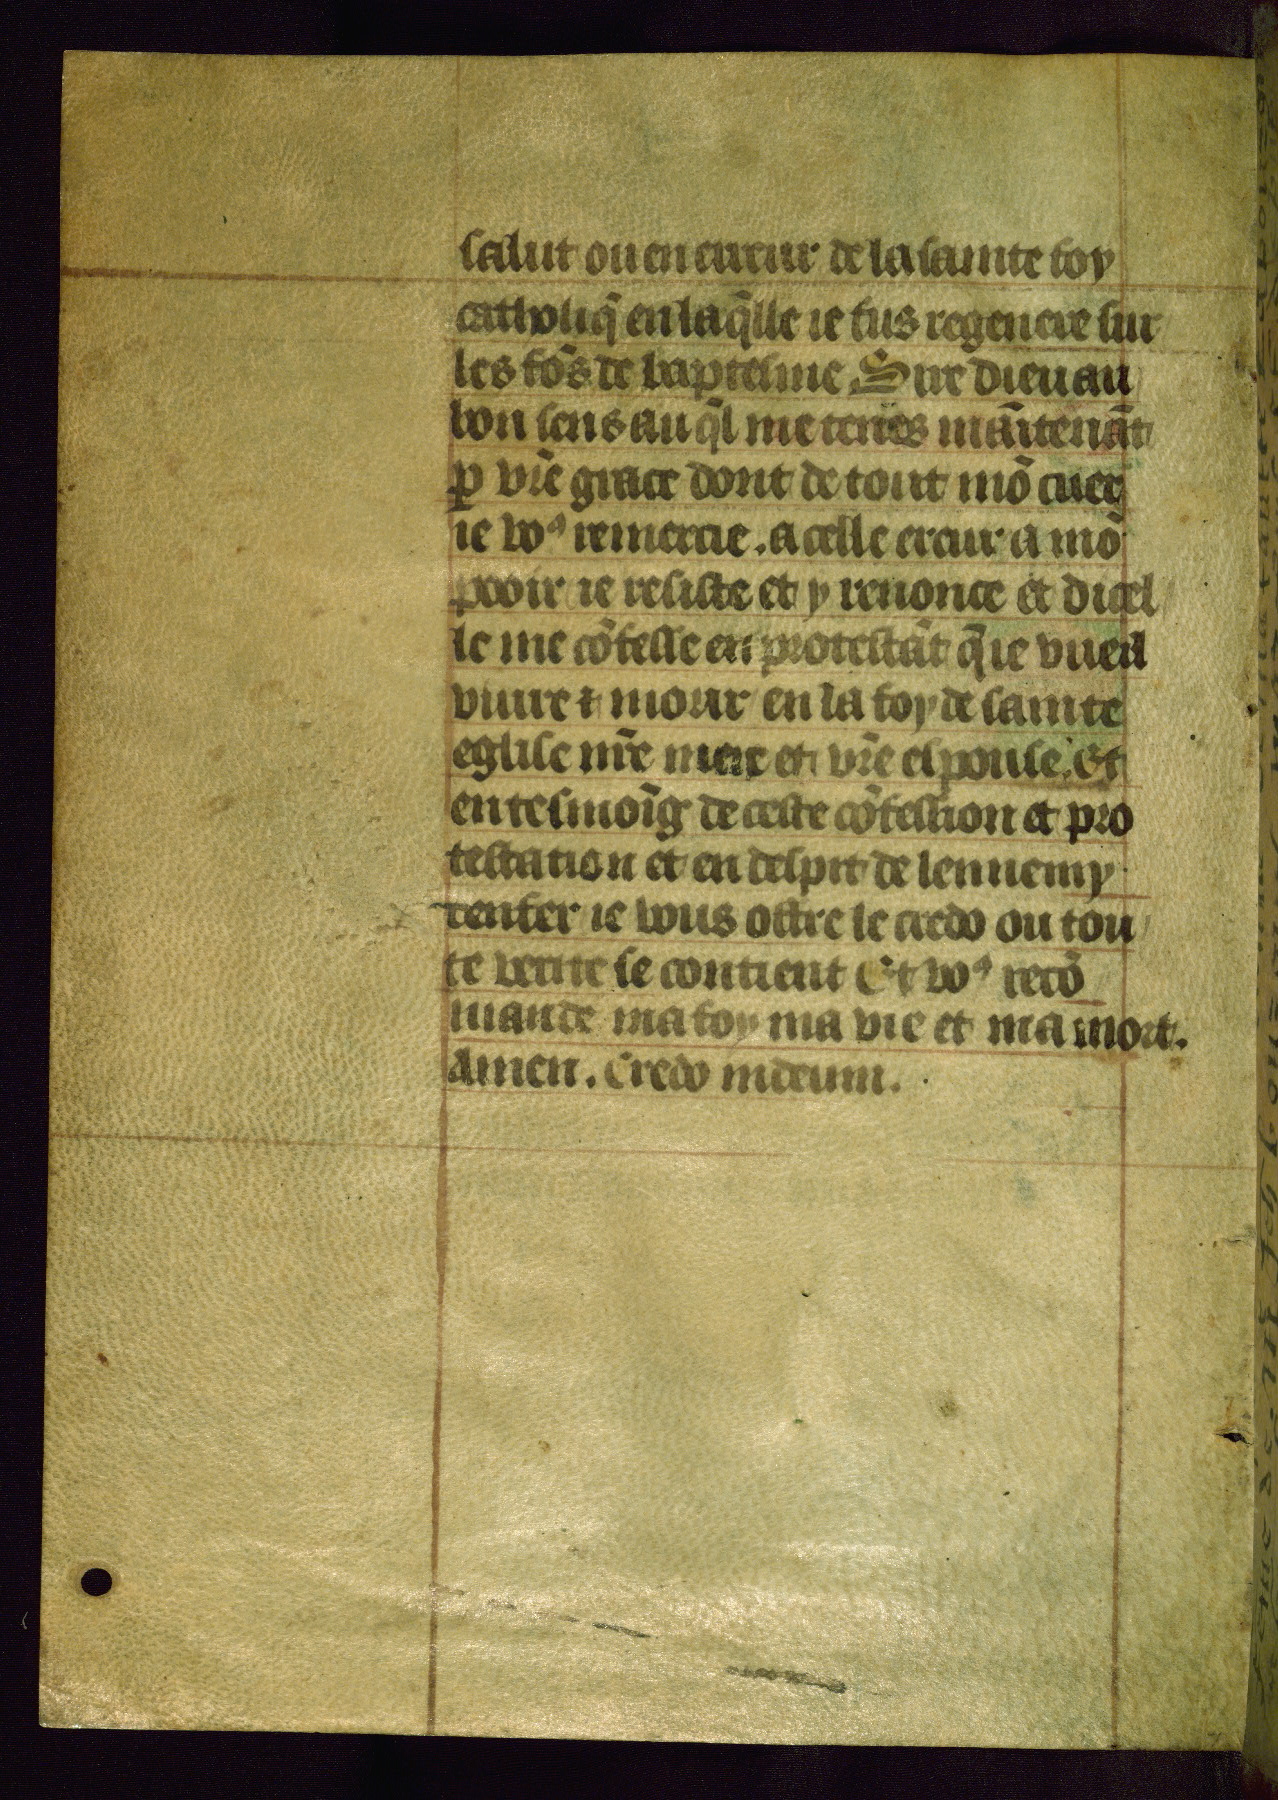 salut ou en erreur de la sainte foy
catholiq̃ en laq̃lle ie fus regenere sur
les fõs de baptesme. Sire dieu au
bon sens au q̃l me tenes mãitenãt
ꝑ vr̃e grace dont de tout mõ cuer
ie voꝰ remercie. a celle ereur a mõ
pooir ie resiste et y renonce et dicel
le me cõfesse en protestãt q̃ ie vueil
viure ⁊ morir en la foy de sainte
eglise nr̃e mere et vr̃e espouse. Et
en tesmoĩg de ceste cõfession et pro
testation et en despit de lennemy
denfer ie vous offre le credo ou tou
te verite se contient Et voꝰ recõ
mande ma foy ma vie et ma mort.
Amen. Credo in deum.